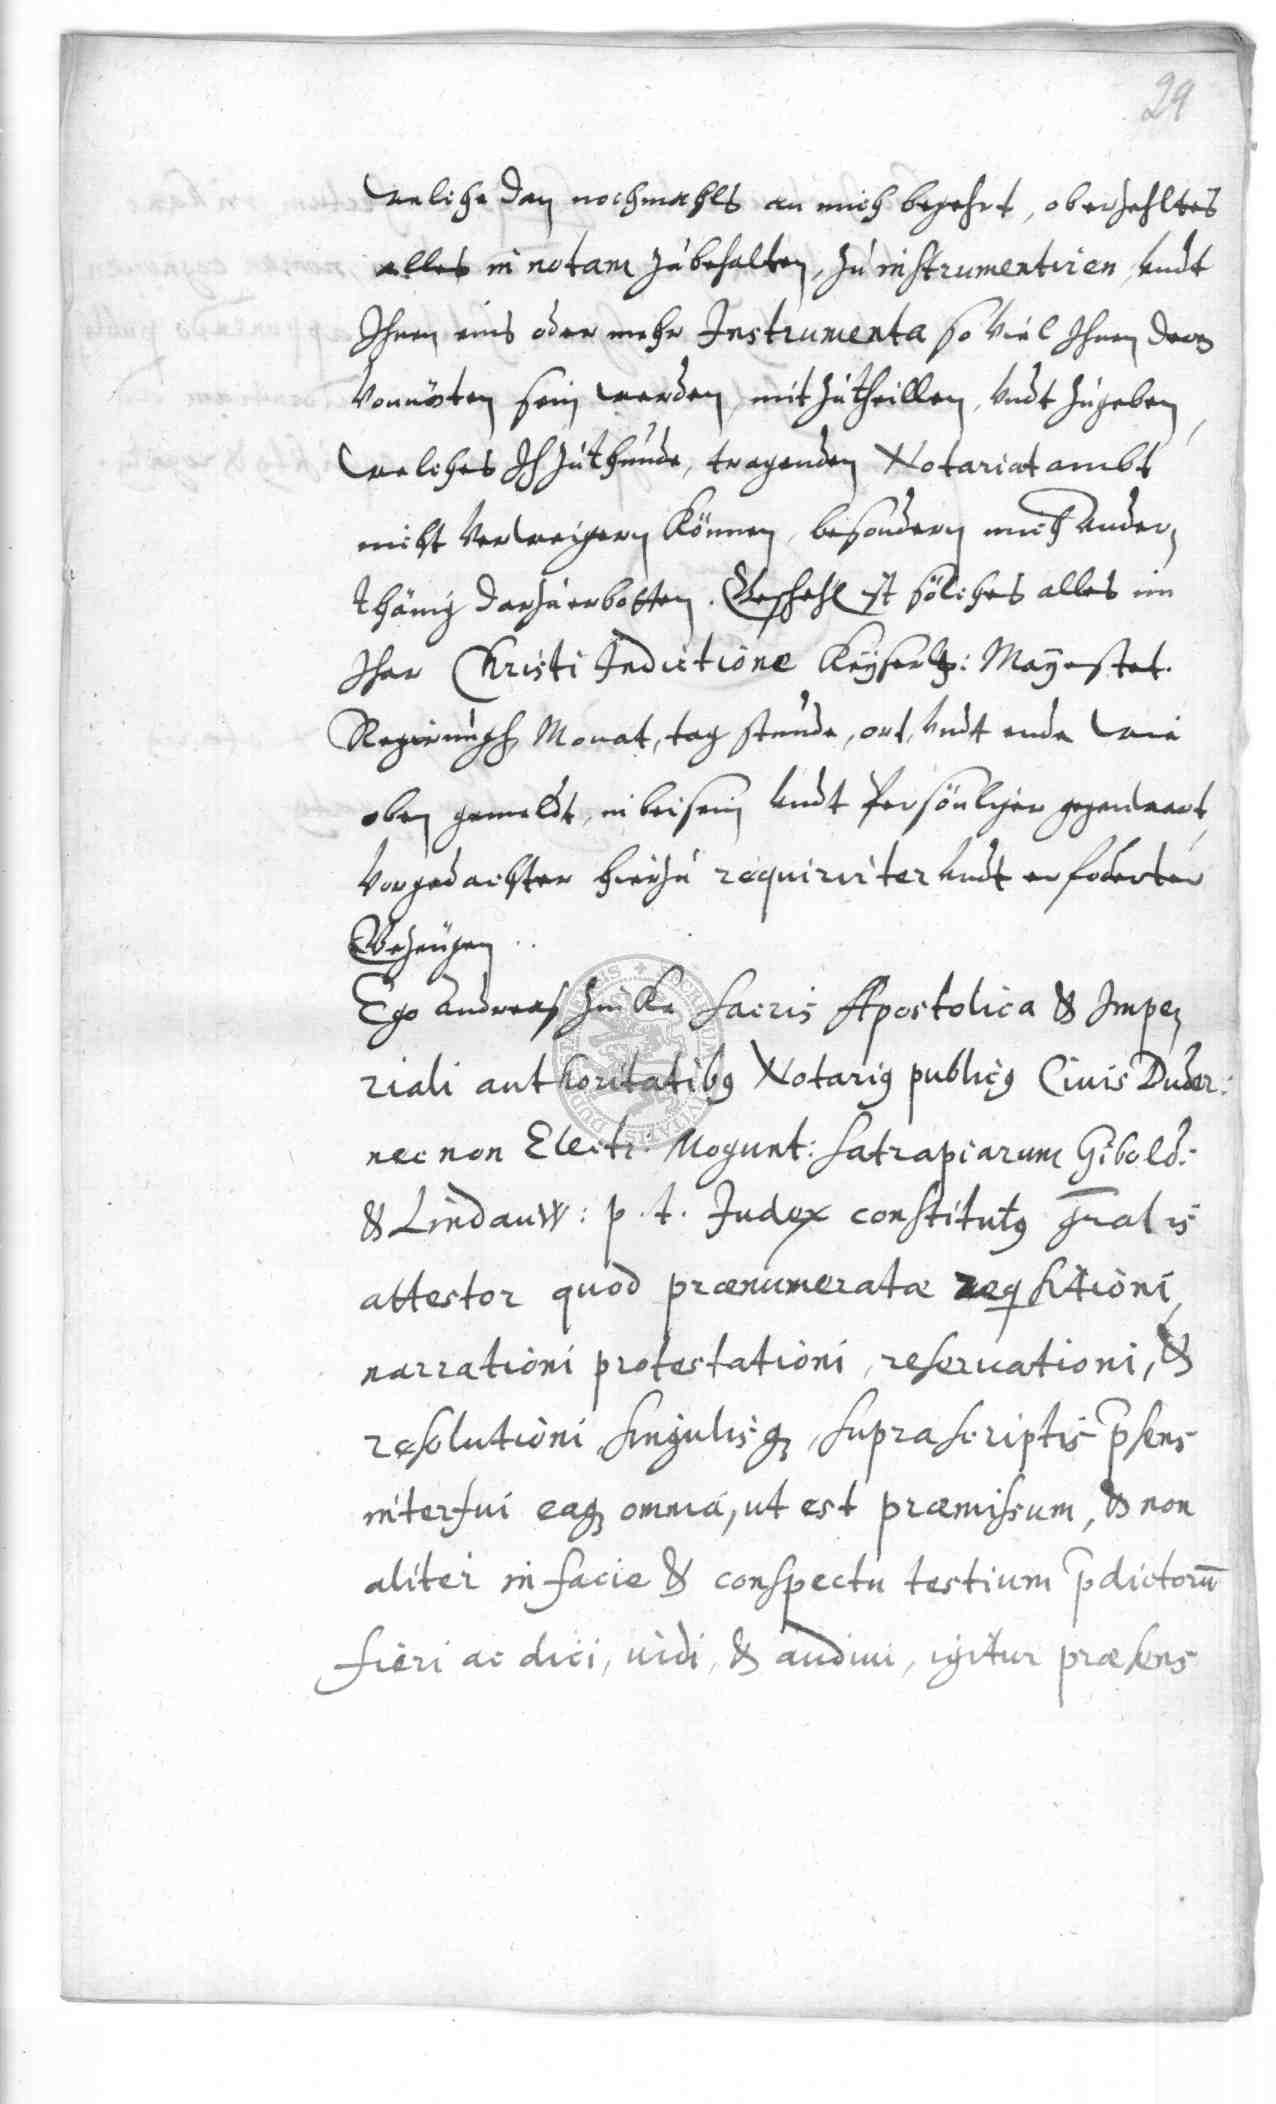 29
welche dan nochmahls an mich begehrt, oberzehltes
alles in notam zubehalten, zu instrumentiren, undt
Ihnen eins oder mehr Instrumenta so viel Ihnen dero
vonnöten sein werden, mitzutheillen, undt zugeben,
welches Ich zuthunde, tragenden Notariat ambt
nicht verweigern können, besondern mich under„
thänig darzu erbotten. Geschehl ist sölches alles im
Ihar Christi Indictione Keyserl: Mayestet.
Regirungh Monat, tag stunde, ort, undt ende wie
oben gemeldt, in beisein undt Persönlicher gegenwart,
vorgedachter hierzu requirirter undt erfoderter
Gezeugen
Ego Andreas Sacris Apostolica & Impe„
riali authoritatibꝰ Notariꝰ publicꝰ Civis Duder:
nec non Elect: Mogunt: Satrapiarum Gibold:
& Lindauw: p. t. Judex constitutꝰ gn̄alis
attestor quod prænumeratæ reqsitioni,
narrationi protestationi, reservationi, &
resolutioni, singulisqꝫ supra scriptis p̄sens
interfui eaqꝫ omnia, ut est præmissum, & non
aliter in facie & conspectu testium p̄dictorū
fieri ac dici, vidi, & audivi, igitur præsens